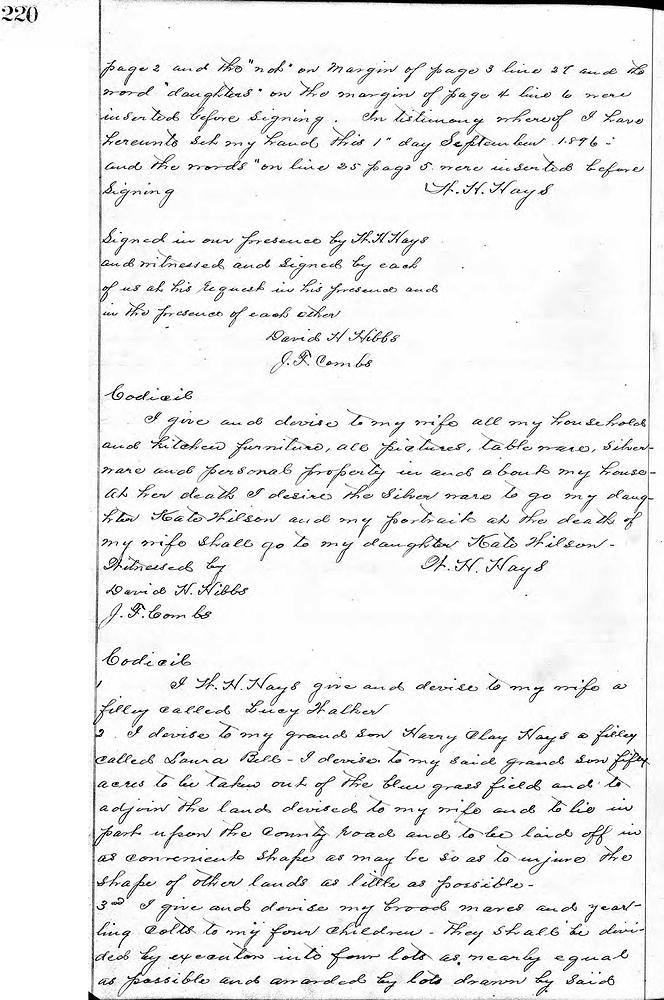 220
page 2 and the "not" on Margin of page 3 line 27 and the
word "daughters" on the margin of page 4 line 6 were
inserted before signing. In testimony whereof I have
hereunto set my hand this 1" day September 1896 :
and the words "on line 25 page 5 were inserted before
Signing W. H. Hays
Signed in our presence by W. H. Hays
and witnessed and signed by each
of us at his request in his presence and
in the presence of each other
David H Hibbs
J. F. Combs
Codicil
I give and devise to my wife all my household
and kitchen furniture, all pictures, table ware, silver-
ware and personal property in and about my house-
At her death I desire the silver ware to go my daug-
hter Kate Wilson and my portrait at the death of
my wife shall go to my daughter Kate Wilson -
Witnessed by W. H. Hays
David H. Hibbs
J. F. Combs
Codicil
1 I W. H. Hays give and devise to my wife a
filley called Lucy Walker
2 I devise to my grand son Harry Clay Hays a filley
called Laura Bell - I devise to my said grand son fifty
acres to be taken out of the blue grass field and to
adjoin the land devised to my wife and to lie in
part upon the County road and to be laid off in
as convenient shape as may be so as to injure the
shape of other lands as little as possible -
3rd I give and devise my brood mares and year-
ling colts to my four children - They shall be divi-
ded by executors into four lots as nearly equal
as possible and awarded by lots drawn by said